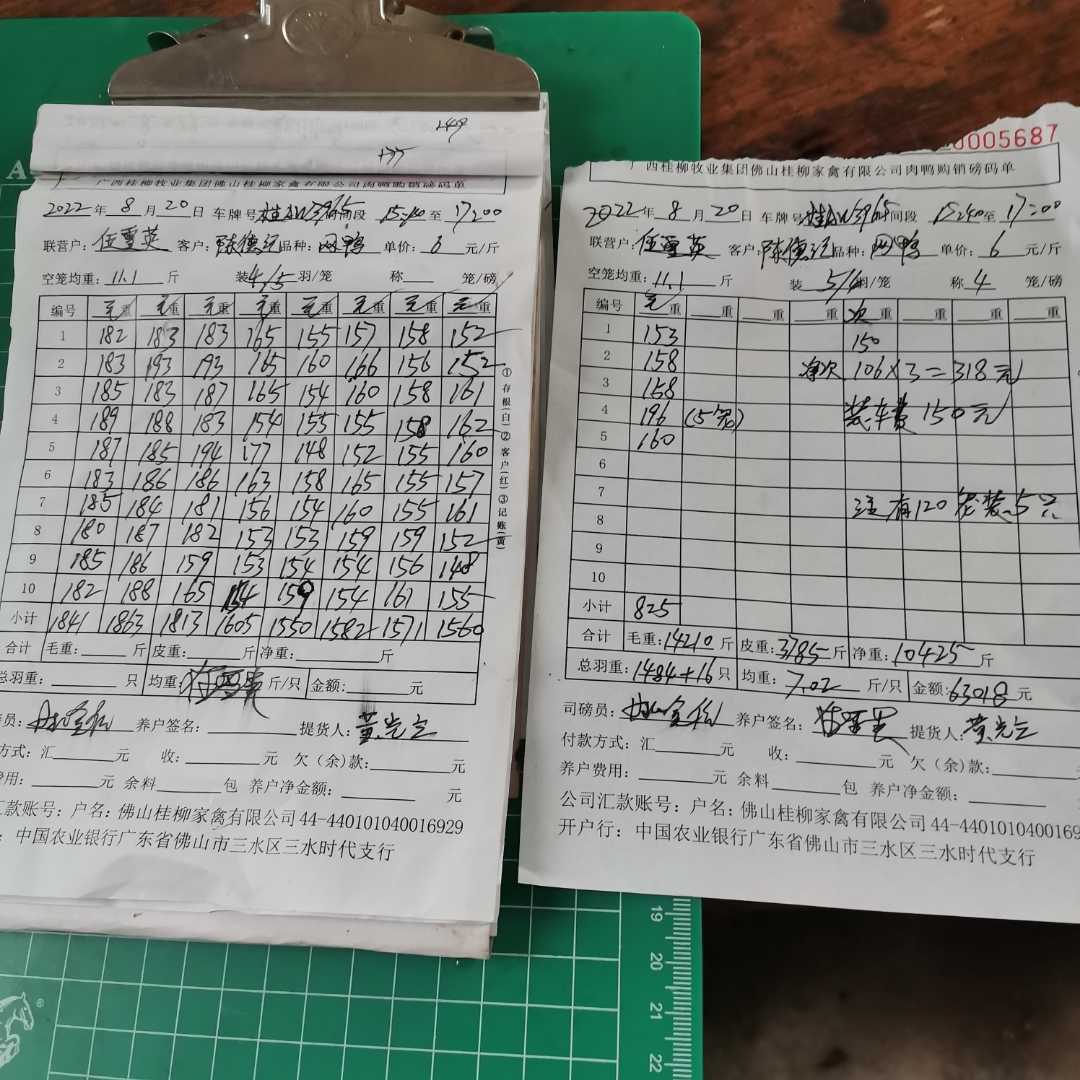 149
135
广西桂柳牧业集团佛山桂柳家禽有限公司肉鸭购销磅码单
2022年 8 月 20 日 车牌号 时间段 至 17:00
联营户: 客户: 品种: 单价: 6 元/斤
空笼均重: 11.1 斤 装 4/5 羽/笼 称 笼/磅
编号 毛重 毛重 毛重 毛重 毛重 毛重 毛重 毛重
1 182 183 183 165 155 157 158 152
2 183 193 193 165 160 166 156 152
3 185 183 187 165 154 160 158 161
4 189 188 183 154 155 155 158 162
5 187 185 194 177 148 152 155 160
6 183 186 186 163 158 165 155 157
7 185 184 181 156 154 160 155 161
8 180 187 182 153 153 159 159 152
9 185 186 159 153 154 154 156 148
10 182 188 165 154 159 154 161 155
小计 1841 1863 1813 1605 1550 1582 1571 1560
合计 毛重: 斤 皮重: 斤 净重: 斤
总羽重: 只 均重: 斤/只 金额: 元
员: 养户签名: 提货人: 黄光立
方式: 汇 元 收: 元 欠(余)款: 元
用: 元 余料 包 养户净金额: 元
汇款账号: 户名: 佛山桂柳家禽有限公司 44-440101040016929
: 中国农业银行广东省佛山市三水区三水时代支行
①存根(白)②客户(红)③记账(黄)
0005687
广西桂柳牧业集团佛山桂柳家禽有限公司肉鸭购销磅码单
2022年 8 月 20 日 车牌号 时间段 至 17:00
联营户: 客户: 品种: 单价: 6 元/斤
空笼均重: 11.1 斤 装 5/4 羽/笼 称 4 笼/磅
编号 毛重 重 重 重 次重 重 重 重
1 153 150
2 158 净次 106×3=318元
3 158
4 196 (5笼) 装车费 150元
5 160
6
7 注有120笼装5只
8
9
10
小计 825
合计 毛重: 14210 斤 皮重: 3785 斤 净重: 10425 斤
总羽重: 1484+16 只 均重: 7.02 斤/只 金额: 63018 元
司磅员: 养户签名: 提货人: 黄光立
付款方式: 汇 元 收: 元 欠(余)款: 元
养户费用: 元 余料 包 养户净金额: 元
公司汇款账号: 户名: 佛山桂柳家禽有限公司 44-44010104001692
开户行: 中国农业银行广东省佛山市三水区三水时代支行
A
19
20
21
22